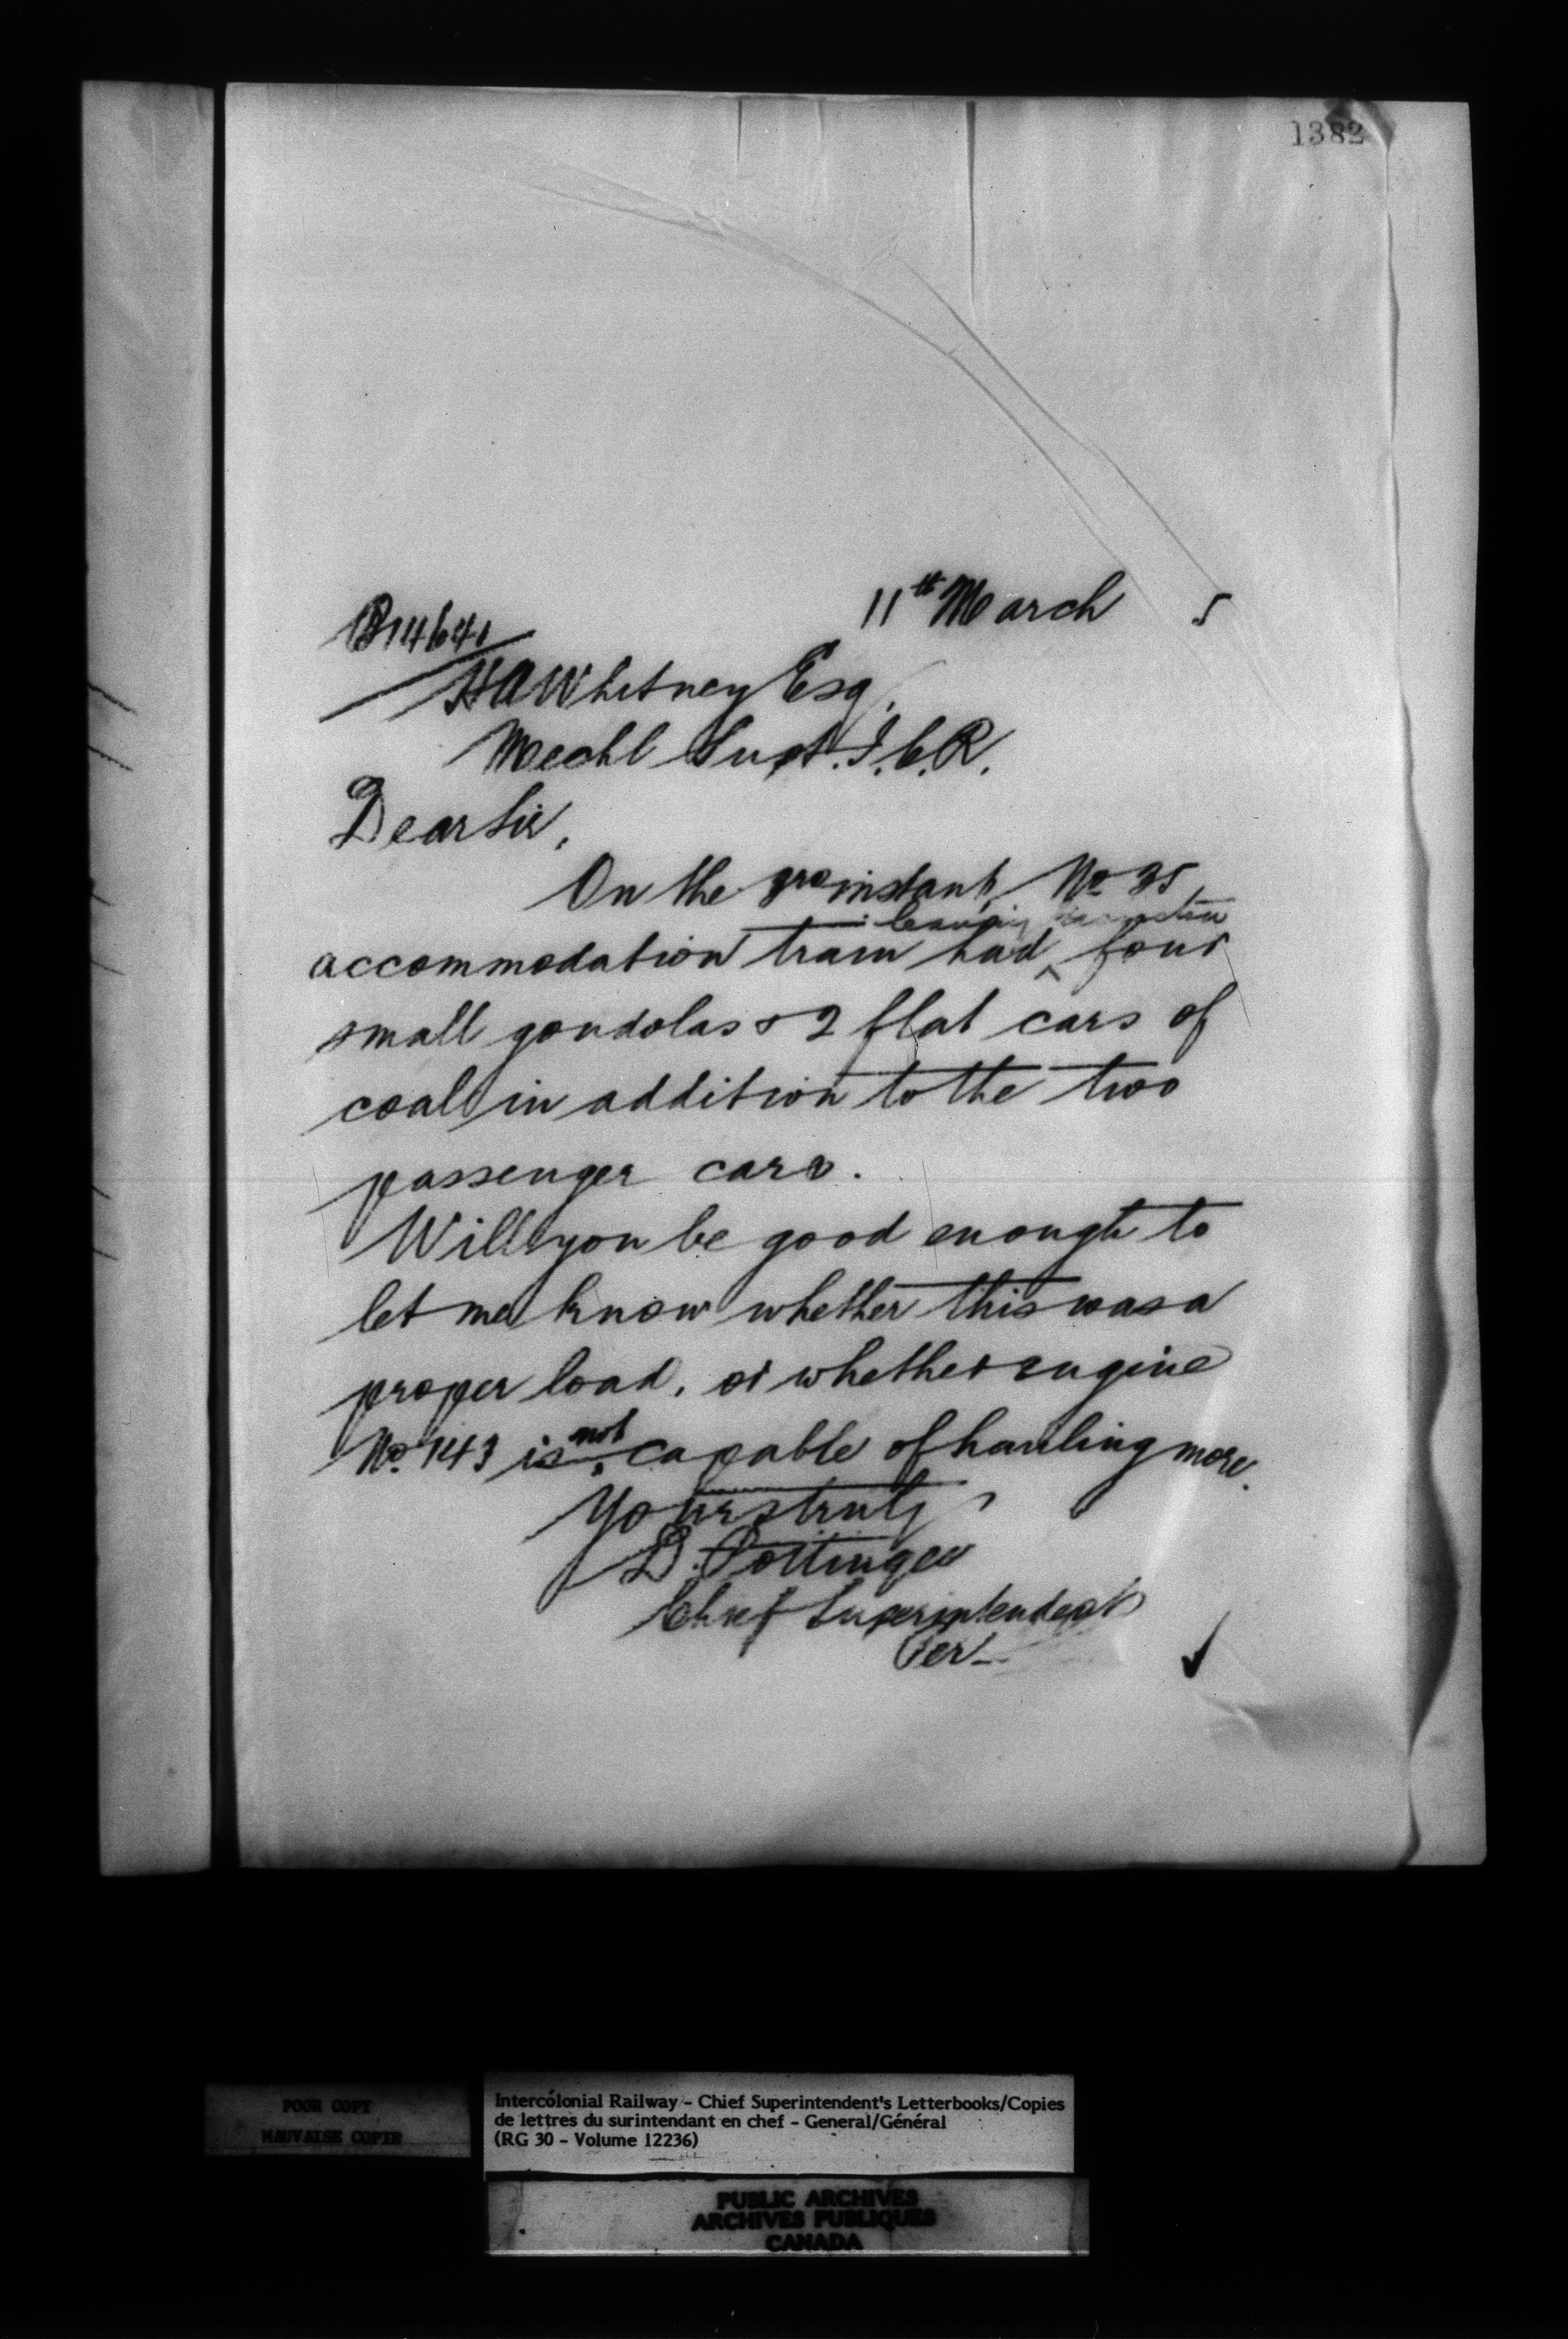 1382
11th March 5
B14641
H A Whitney Esq.
Mechl Supt. I.C.R.
Dear Sir,
On the instant, No 35
leaving
accommodation train had ^ four
small gondolas & 2 flat cars of
coal in addition to the two
passenger cars.
Will you be good enough to
let me know whether this was a
proper load, or whether engine
not
No 143 is ^ capable of hauling more.
Yours truly
D. Pottinger
Chief Superintendent
Per
POOR COPY
MAUVAISE COPIE
Intercolonial Railway - Chief Superintendent's Letterbooks/Copies
de lettres du surintendant en chef - General/Général
(RG 30 - Volume 12236)
PUBLIC ARCHIVES
ARCHIVES PUBLIQUES
CANADA